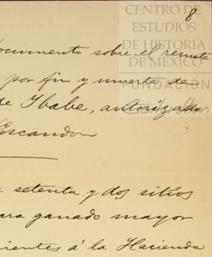 8
CENTRO DE
ESTUDIOS
DE HISTORIA
DE MÉXICO
FUNDACIÓN
documento sobre el remate
por fin y muerte de
de Ybabe, autorizado
Escandon
setenta y dos sitios
para ganado mayor
cientes á la Hacienda